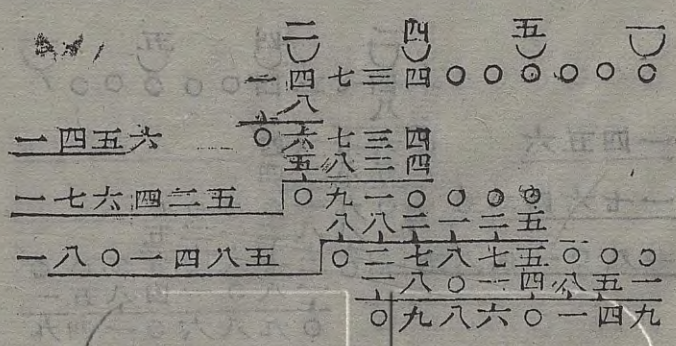 二四五一
一四七三四〇〇〇〇〇〇
八
一四五六 〇六七三四
五八二四
一七六四二五 〇九一〇〇〇〇
八八二一二五
一八〇一四八五 〇二七八七五〇〇〇
一八〇一四八五一
〇九八六〇一四九